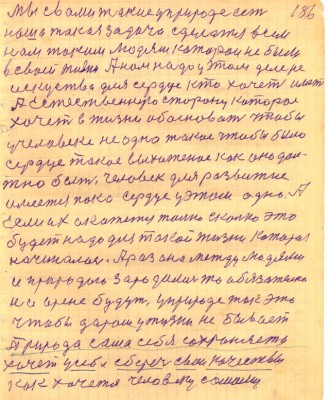 186
Мы с вами такие у природе ест
наша такая задача сделать всем
нам таким людям которои не было
в своей жизни А нам надо у этом деле ре
искуства для сердце кто хочет
А Естественную сторону которое
хочет в жизни обосноват чтобы
у человеке не одно такое чтобы было
сердце такое как оно дол
жно быт. человек для развитие
имеется пока сердце у этом одно. А
если их скажем только сколко это
будет надо для такой жизни которая
началася. А раз она между людями
и природою зародилися то обязателно
и они будут. у природе так это
чтобы даром у жизни не бывает
Природа сама себя сохроняеть
хочет у себе сбереч свои качествы
как хочется человеку самому